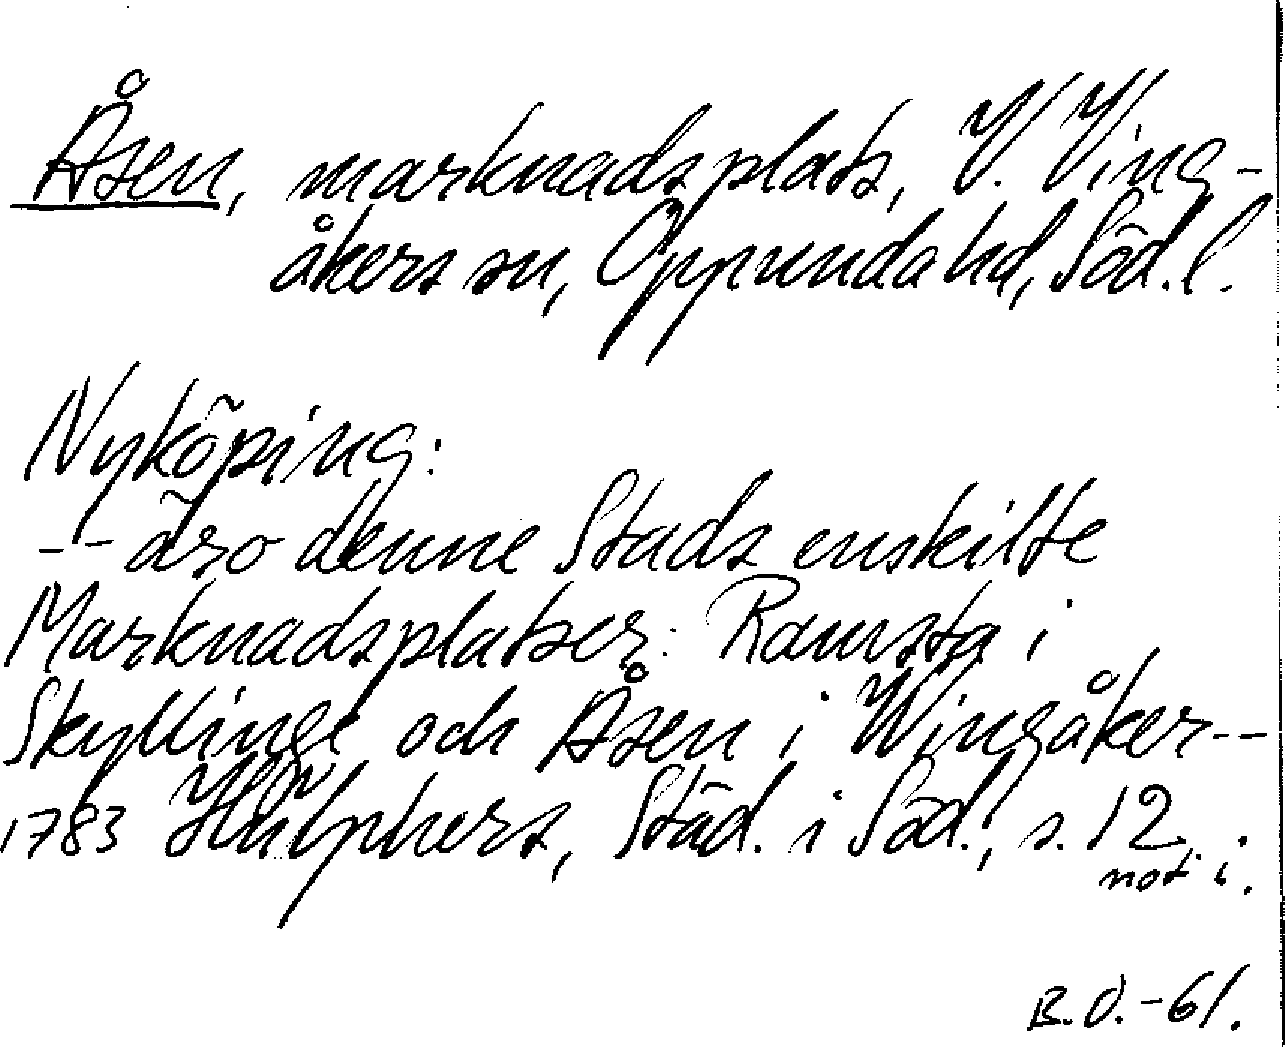 Åsen, marknadsplats, V. Ving-
åkers sn, Oppunda hd, Söd.l.
Nyköping:
-- äro denne Stads enskilte
Marknadsplatser: Ramsta i
Skyllinge och Åsen i Wingåker--
1783 Hülphers, Städ. i Söd., s. 12.
not i.
B.O.-61.